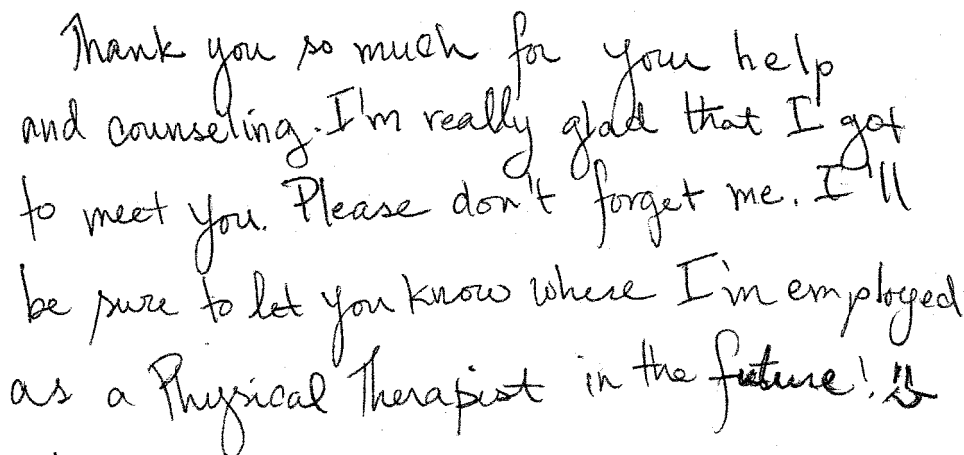 Thank you so much for your help
and counseling. I'm really glad that I got
to meet you. Please don't forget me. I'll
be sure to let you know where I'm employed
as a Physical Therapist in the future!